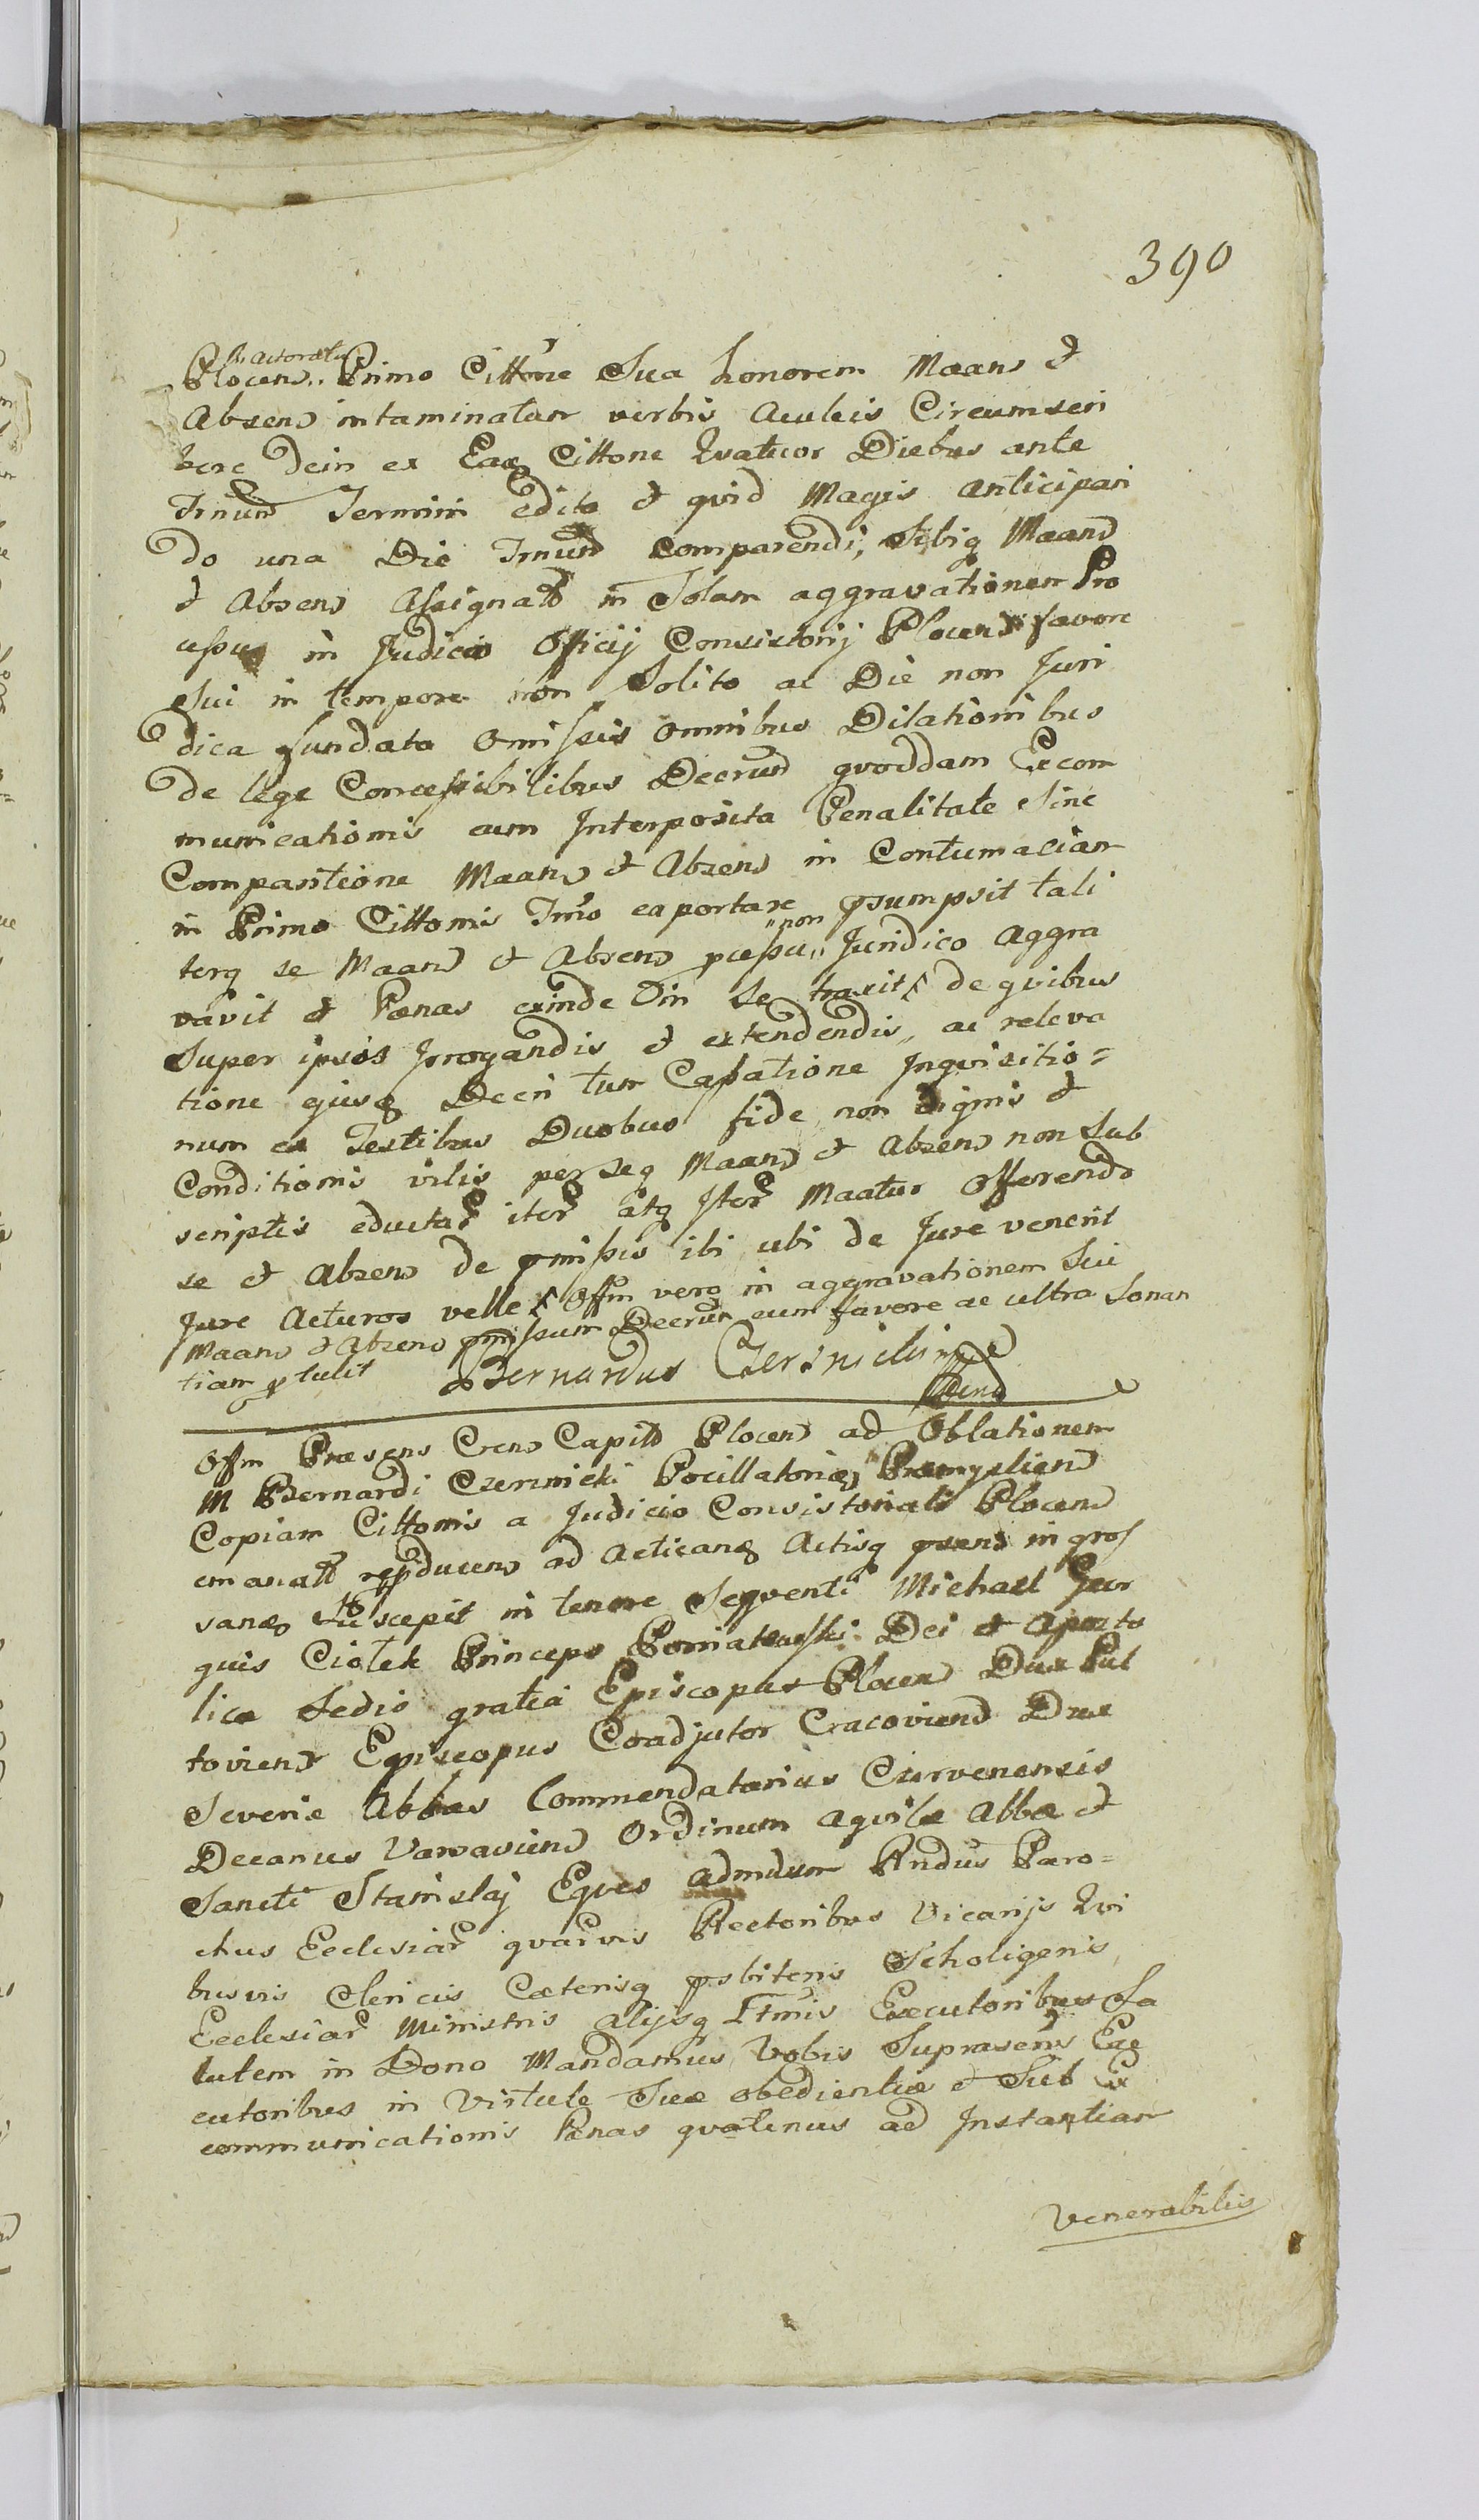 390
Plocen Actoratu Primo Cittõne Sua honorem Maan et
Absen intaminatam verbis Aculeis Circumscri
bere dein ex Eaq Cittone Quatuor Diebus ante
Trnum Termini edita et quid Magis anticipan
do una Die Trnum comparendi, Sibiq Maan
et Absen Assignato in Solam aggravationem Pro
in Judicio Officij Consistorij Plocen favore
sui in tempore non Solito ac Die non Juri
dica fundata omissis omnibus Dilationibus
de lege Concessibilibus Decrum quoddam Excom
municationis cum Interposita Penalitate sine
Comparitione Maan et Absen in Contumaciam
in Primo Cittonis Trno exportare psumpsit tali
terq se Maan et Absen pcessu "non" Juridico Aggra
vavit et Pænas exinde in se traxit de quibus
Super ipsos Jrrogandis et extendendis, ac releva
tione ejusq Decri tum Cassatione Inquisitio=
num ex Testibus Duobus fide non dignis et
Conditionis vilis per seq Maan et Absen non Sub
scriptis eductar iter atq Iter Maatur Offerendo
se et Absen de pmissis ibi ubi de Jure venerit
Jure Acturos velle Offm vero in aggravationem Sui
Maan et Absen pmissum Decrum cum favore ac ultra Sonan
tiam ptulit Bernardus Czerniewicz

Offm Præsens Cren Capit Plocen ad Oblationem
M Bernardi Czernicki Pocillatoris Præmyslien
Copiam Cittonis a Judicio Consistoriali Plocen
emanat repducen ad Acticanq Actisq psens ingros
sanq Suscepit in tenore Sequenti Michael Geor
gius Ciołek Princeps Poniatowski Dei et Aposto
lica Sedis gratia Episcopus Plocen Dux Pul
tovien Episcopus Coadjutor Cracovien Dux
Severiæ Abbas Commendatarius Czervenensis
Decanus Varsavien Ordinum Aquilæ Albæ et
Sancti Stanislaj Eques Admdum Rndus Paro=
chus Ecclesiar quarvis Rectoribus Vicarijs Qui
busvis Clericis Cæterisq psbiteris Scholigeris
Ecclesiar Ministris alijsq Ltmis Executoribus Sa
lutem in Dono Mandamus Vobis Suprascris Exe
cutoribus in Virtute Suæ obedientiæ et Sub Ex
communicationis Pænas quatenus ad Instantiam
Venerabilis